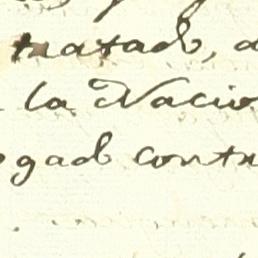 tratado, a
la Nacio
ogado contr